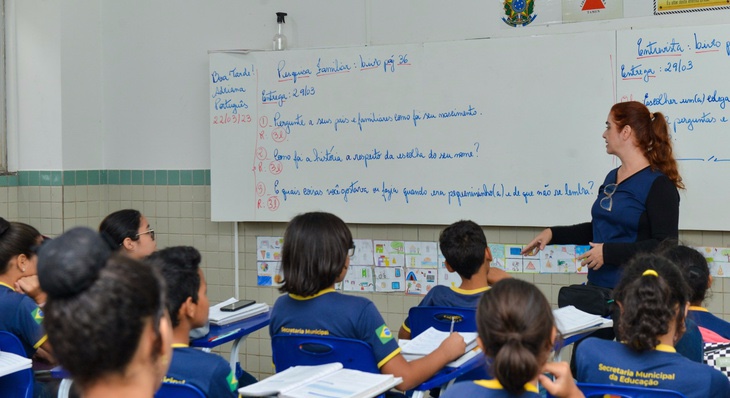 Boa Tarde
Adriana
Português
22/03/23
Pesquisa Familiar: livro pág 36
Entrega: 29/03
① - Pergunte a seus pais e familiares como foi seu nascimento.
R. 3l
② - Como foi a história a respeito da escolha do seu nome?
R. 3l
③ - E quais coisas você gostava ou fazia quando era pequenininho(a) e de que não se lembra?
R. 3l
Entrevista: livro p
Entrega: 29/03
Escolher um(a) colega
perguntas e
Secretaria Municipal
Secretaria Municipal
da Educação
Secretaria Municipal